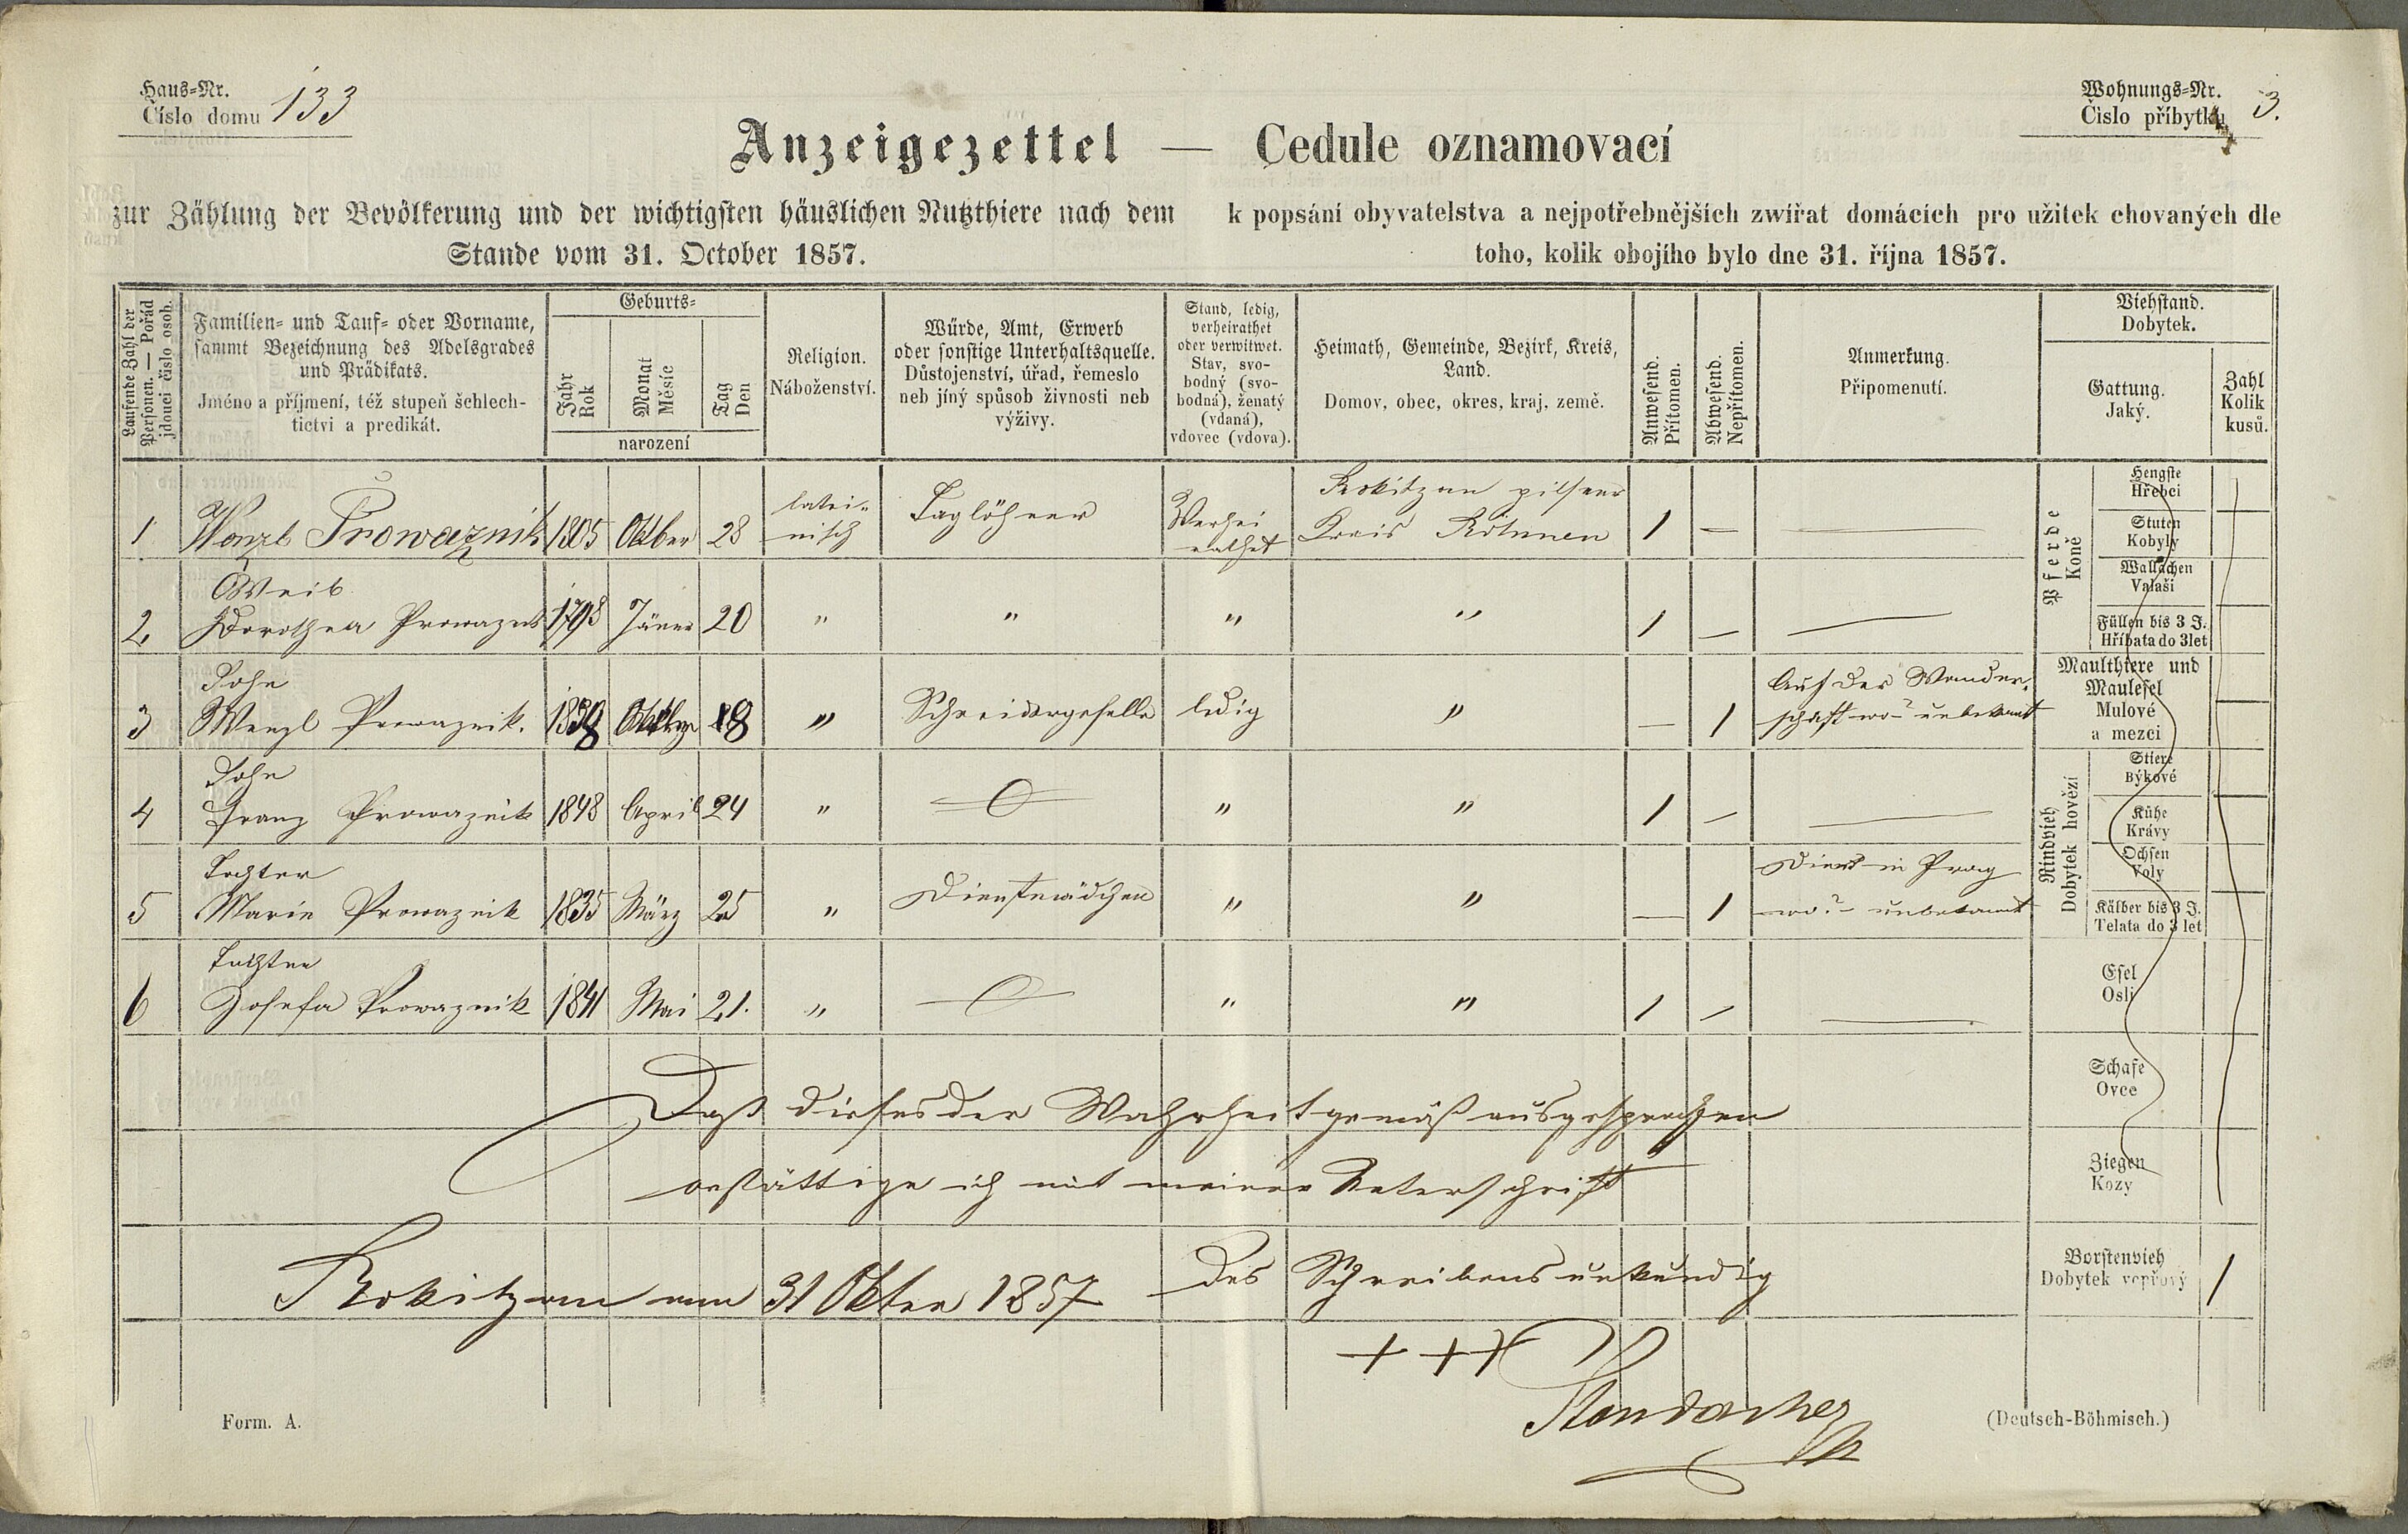 Haus-Nr.
Číslo domu 133
Wohnungs-Nr.
Čislo příbytku 3.
Anzeigezettel — Cedule oznamovací
zur Zählung der Bevölkerung und der wichtigsten häuslichen Nutzthiere nach dem
Stande vom 31. October 1857.
k popsání obyvatelstva a nejpotřebnějších zwířat domácích pro užitek chovaných dle
toho, kolik obojího bylo dne 31. října 1857.
Laufende Zahl der
Personen. — Pořád
jdoucí číslo osob.
Familien- und Tauf- oder Vorname,
sammt Bezeichnung des Adelsgrades
und Prädikats.
Jméno a příjmení, též stupeň šchlech-
tictvi a predikát.
Geburts-
Jahr
Rok
Monat
Měsíc
Tag
Den
narození
Religion.
Náboženství.
Würde, Amt, Erwerb
oder sonstige Unterhaltsquelle.
Důstojenství, úřad, řemeslo
neb jíný spůsob živnosti neb
výživy.
Stand, ledig,
verheirathet
oder verwitwet.
Stav, svo-
bodný (svo-
bodná), ženatý
(vdaná),
vdovec (vdova).
Heimath, Gemeinde, Bezirk, Kreis,
Land.
Domov, obec, okres, kraj, země.
Anwesend.
Přítomen.
Abwesend.
Nepřítomen.
Anmerkung.
Připomenutí.
Viehstand.
Dobytek.
Gattung.
Jaký.
Zahl
Kolik
kusů.
1 Wenzl Prowaznik 1805 Oktber 28 latei-
nisch Taglöhner Verhei
rathet Rokitzan pilsner
Kreis Böhmen 1 — —
Weib
2 Dorothea Prowaznik 1798 Jäner 20 " " " " 1 — —
Sohn
3 Wenzl Prowaznik. 1838 18 " Schneidergeselle ledig " — 1 Auf der Wander-
schaft wo? unbekannt
Sohn
4 Franz Prowaznik 1848 April 24 " " " 1 — —
Tochter
5 Marie Prowaznik 1835 März 25 " Dienstmädchen " " — 1 Dienst in Prag
wo? – unbekannt
Tochter
6 Josefa Prowaznik 1841 Mai 21. " " " 1 — —
Pferde
Koně
Hengste
Hřebci
Stuten
Kobyly
Wallachen
Valaši
Füllen bis 3 J.
Hříbata do 3 let
Maulthiere und
Maulesel
Mulové
a mezci
Rindvieh
Dobytek hovězí
Stiere
Býkové
Kühe
Krávy
Ochsen
Voly
Kälber bis 3 J.
Telata do 3 let
Esel
Osli
Schafe
Ovce
Ziegen
Kozy
Borstenvieh
Dobytek vepřový 1
Daß dieses der Wahrheit gemäß ausgesprochen
bestättige ich mit meiner Unterschrift
Rokitzan am 31 Okber 1857 Des Schreibens unkundig
+++
Form. A.
(Deutsch-Böhmisch.)